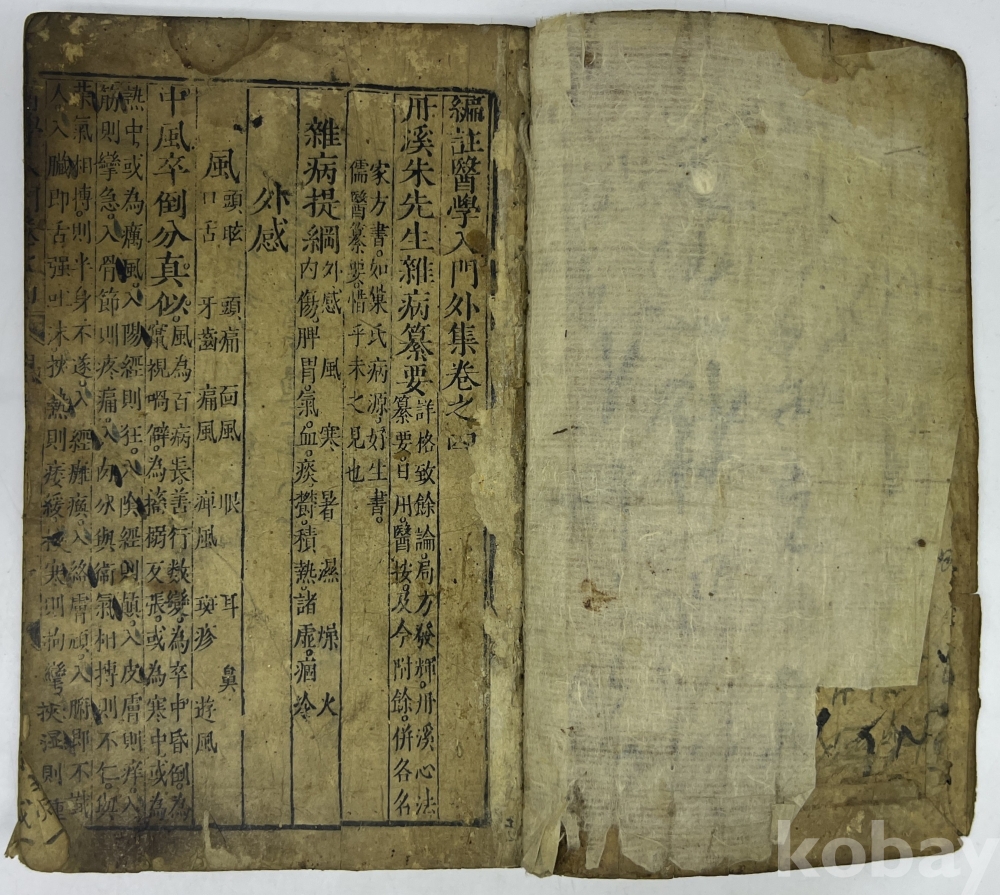 編註醫學入門外集卷之四
丹溪朱先生雜病纂要
詳格致餘論。局方發輝。丹溪心法
纂要。日用。醫按。及今附餘。併各名
家方書。如巢氏病源。好生書。
儒醫纂要。惜乎未之見也
雜病提綱
外感 風 寒 暑 濕 燥 火
內傷脾胃。氣血。痰鬱。積熱。諸虛。痼冷
外感
風
頭眩 頭痛 面風 眼 耳 鼻
口舌 牙齒 痛風 痺風 斑疹 遊風
中風卒倒分真似。
風為百病長。善行數變。為卒中昏倒。為
視喎僻。為搐搦反張。或為寒中或為
熱中。或為癘風。入陽經則狂。入陰經則癲。入皮膚則痒。入
筋則攣急。入骨節則疼痛。入肉分與衛氣相搏則不仁。與
榮氣相搏。則半身不遂。入經癱瘓。入絡膚頑。入腑即不識
人。入臟即舌强吐沫。挾熱則痿緩。挾寒則拘攣。挾濕則腫
kobay